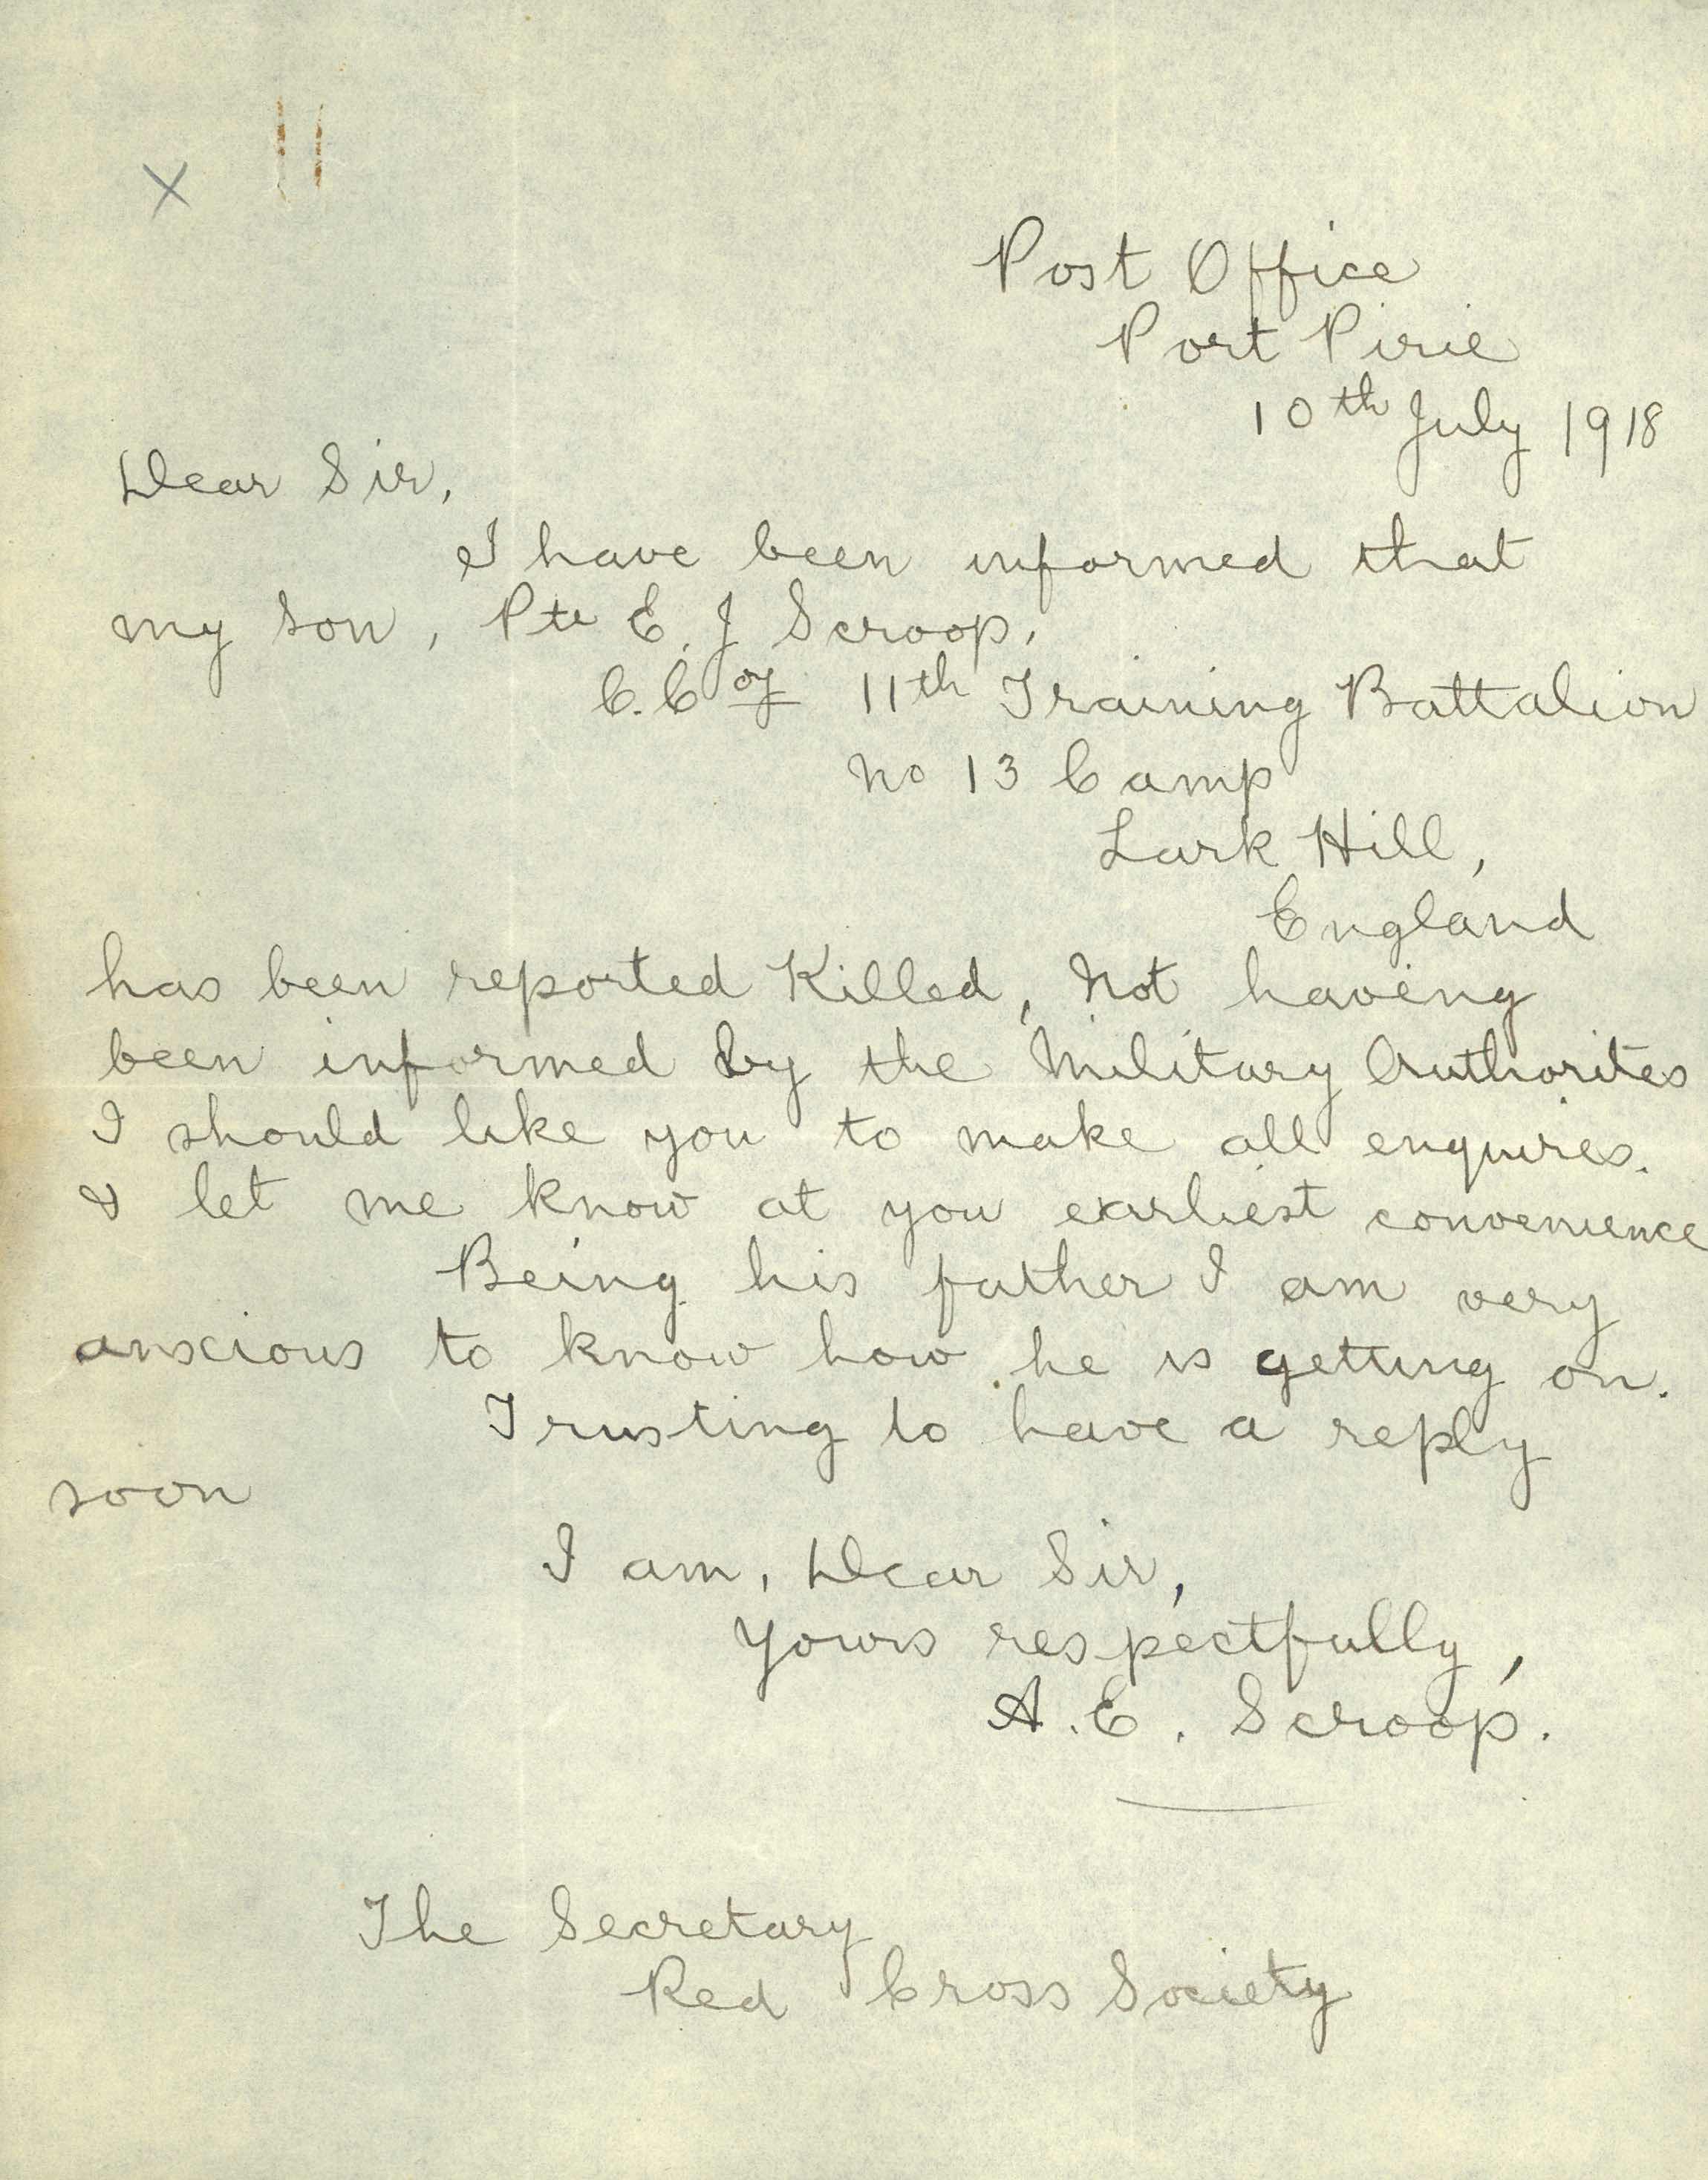 X
Post Office
Port Pirie
10th July 1918
Dear Sir,
I have been informed that
my son, Pte E. J Scroop.
C. Coy 11th Training Battalion
No 13 Camp
Lark Hill,
England
has been reported Killed, Not having
been informed by the Military Authorites
I should like you to make all enquires.
& let me know at you earliest convenience
Being his father I am very
anxious to know how he is getting on.
Trusting to have a reply
soon
I am, Dear Sir,
Yours respectfully,
A. E. Scroop.
The Secretary
Red Cross Society